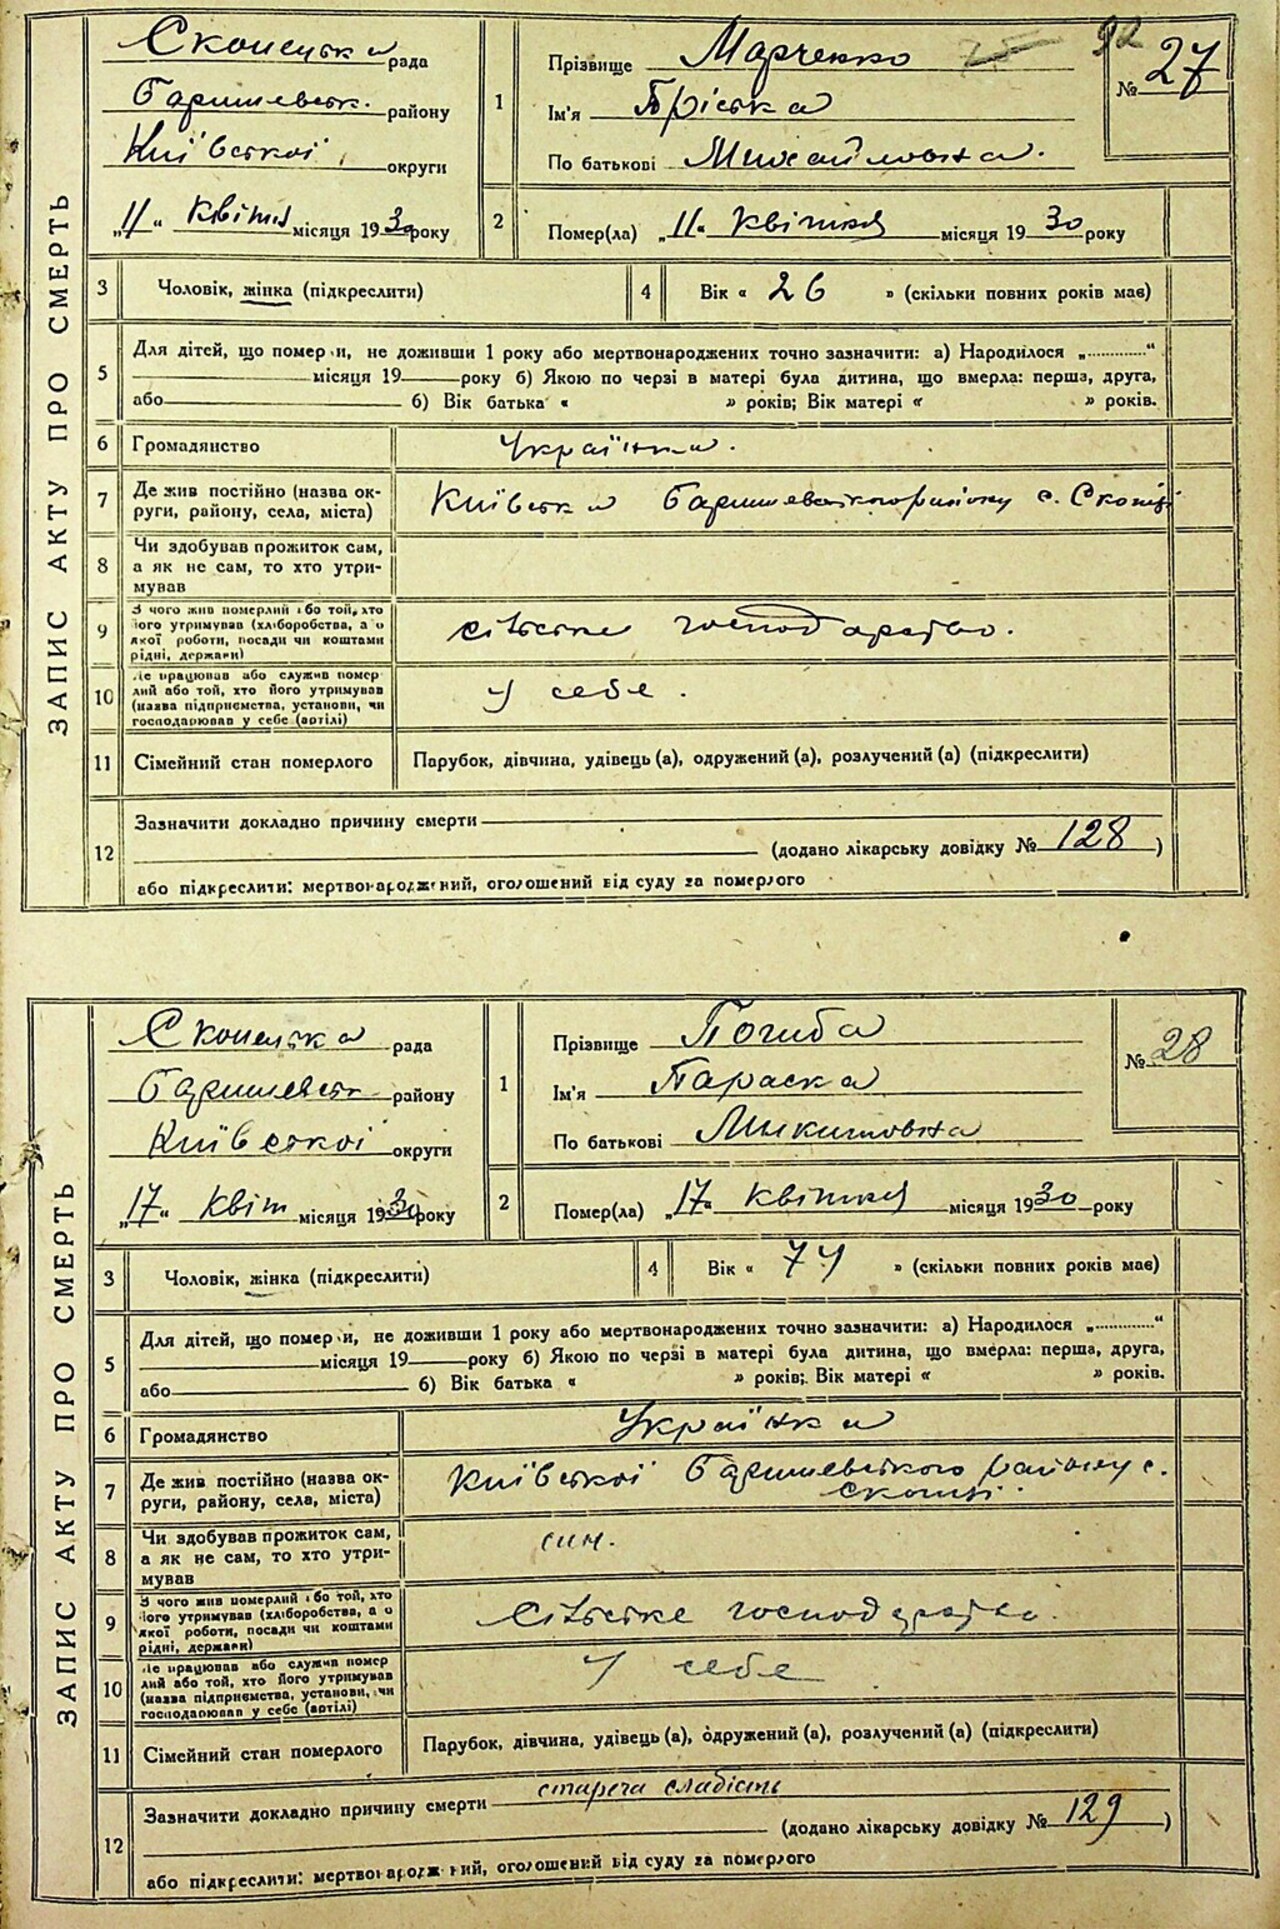 ЗАПИС АКТУ ПРО СМЕРТЬ
Скопецька рада
Баришевськ. району
Київської округи
„11“ квітня місяця 1930 року
1 Прізвище Марченко
Ім'я Пріська
По батькові Михайловна.
92
№ 27
2 Помер(ла) „11“ квітня місяця 1930 року
3 Чоловік, жінка (підкреслити)
4 Вік « 26 » (скільки повних років має)
5 Для дітей, що померли, не доживши 1 року або мертвонароджених точно зазначити: а) Народилося „..............“
місяця 19 року б) Якою по черзі в матері була дитина, що вмерла: перша, друга,
або б) Вік батька « » років; Вік матері « » років.
6 Громадянство Українка.
7 Де жив постійно (назва ок-
руги, району, села, міста) Київська Баришевського району с. Скопці
8 Чи здобував прожиток сам,
а як не сам, то хто утри-
мував
9 З чого жив померлий або той, хто
його утримував (хліборобства, а о
якої роботи, посади чи коштами
рідні, держави) сільське господарство.
10 Де працював або служив помер
лий або той, хто його утримував
(назва підприємства, установи, чи
господарював у себе (артілі) у себе.
11 Сімейний стан померлого Парубок, дівчина, удівець (а), одружений (а), розлучений (а) (підкреслити)
12 Зазначити докладно причину смерти
(додано лікарську довідку № 128 )
або підкреслити: мертвонароджений, оголошений від суду за померлого
ЗАПИС АКТУ ПРО СМЕРТЬ
Скопецька рада
Баришевськ району
Київської округи
„17“ квіт місяця 1930 року
1 Прізвище Погиба
Ім'я Параска
По батькові Микитовна
№ 28
2 Помер(ла) „17“ квітня місяця 1930 року
3 Чоловік, жінка (підкреслити)
4 Вік « 74 » (скільки повних років має)
5 Для дітей, що померли, не доживши 1 року або мертвонароджених точно зазначити: а) Народилося „..............“
місяця 19 року б) Якою по черзі в матері була дитина, що вмерла: перша, друга,
або б) Вік батька « » років;. Вік матері « » років.
6 Громадянство Українка
7 Де жив постійно (назва ок-
руги, району, села, міста) Київської Баришевського району с.
Скопці.
8 Чи здобував прожиток сам,
а як не сам, то хто утри-
мував син.
9 З чого жив померлий або той, хто
його утримував (хліборобства, а о
якої роботи, посади чи коштами
рідні, держави) Сільське господарство.
10 Де працював або служив помер
лий або той, хто його утримував
(назва підприємства, установи, чи
господарював у себе (артілі) у себе
11 Сімейний стан померлого Парубок, дівчина, удівець (а), одружений (а), розлучений (а) (підкреслити)
12 Зазначити докладно причину смерти стареча слабість
(додано лікарську довідку № 129 )
або підкреслити: мертвонароджений, оголошений від суду за померлого